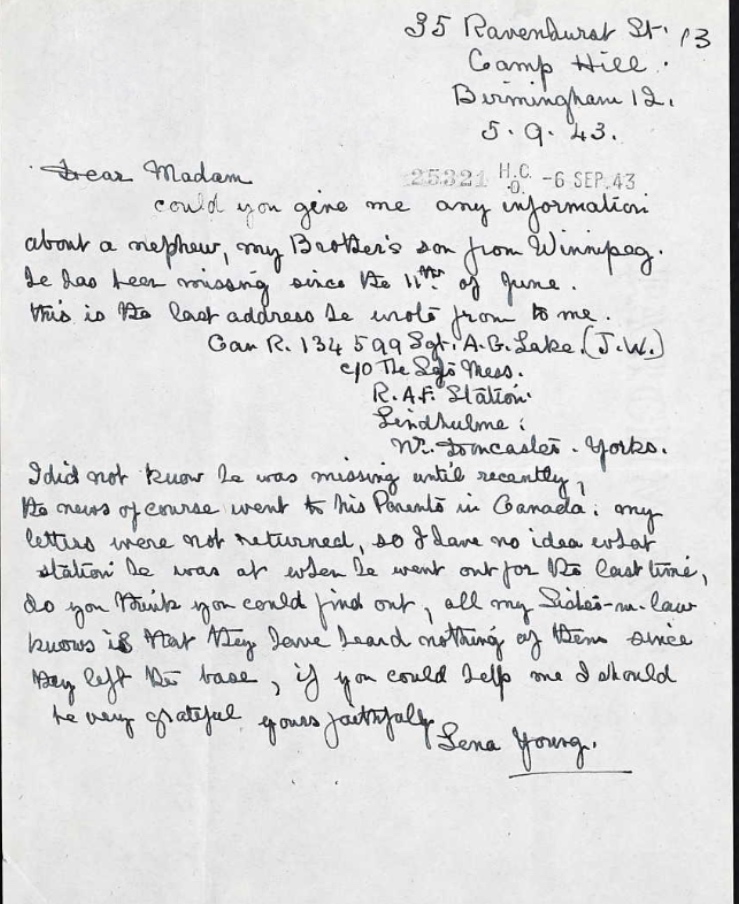 35 Ravenhurst St. 13
Camp Hill.
Birmingham 12.
5.9.43.
Dear Madam
25321 H.C. -6 SEP.43
could you give me any information
about a nephew, my Brother's son from Winnipeg.
he has been missing since the 11th of June.
this is the last address he wrote from to me.
Can R. 134599 Sgt. A.G. Lake. (J.W.)
c/o The Sgts Mess.
R.A.F. Station.
Lindhulme.
Nr. Doncaster. Yorks.
I did not know he was missing until recently,
the news of course went to his Parents in Canada. my
letters were not returned, so I have no idea what
station he was at when he went out for the last time,
do you think you could find out, all my Sister-in-law
knows is that they have heard nothing of them since
they left the base, if you could help me I should
be very grateful yours faithfully
Lena Young.